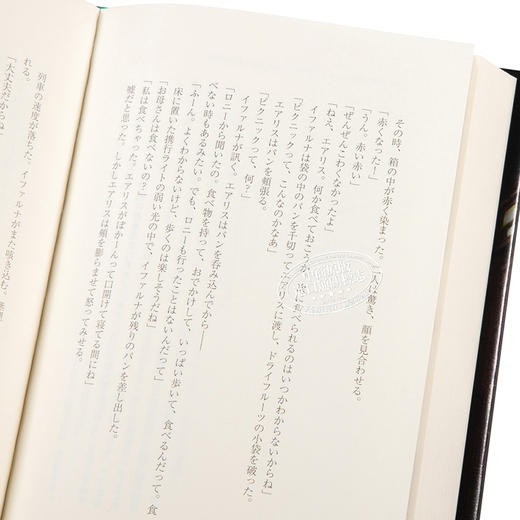 その時、箱の中が赤く染まった。二人は驚き、顔を見合わせる。
「赤くなったー」
「うん。赤い赤い」
「ぜんぜんこわくなかったよ」
「ねえ、エアリス。何か食べておこうか。次に食べられるのはいつかわからないからね」
イファルナは袋の中のパンを千切ってエアリスに渡し、ドライフルーツの小袋を破った。
「ピクニックって、こんなのかなあ」
エアリスはパンを頬張る。
「ピクニックって、何?」
イファルナが訊く。エアリスはパンを呑み込んでから――
「ロニーから聞いたの。食べ物を持って、おでかけして、いっぱい歩いて、食べるんだって。食
べない時もあるみたい。でも、ロニーも行ったことはないんだって」
「ふーん。よくわからないけど、歩くのは楽しそうだね」
床に置いた携行ライトの弱い光の中で、イファルナが残りのパンを差し出した。
「お母さんは食べないの?」
「私は食べちゃった。エアリスがぽかーんって口開けて寝てる間にね」
嘘だと思った。しかしエアリスは頬を膨らませて怒ってみせる。
列車の速度が落ちた。イファルナがまた咳き込む。
れる。
「大丈夫だからね」